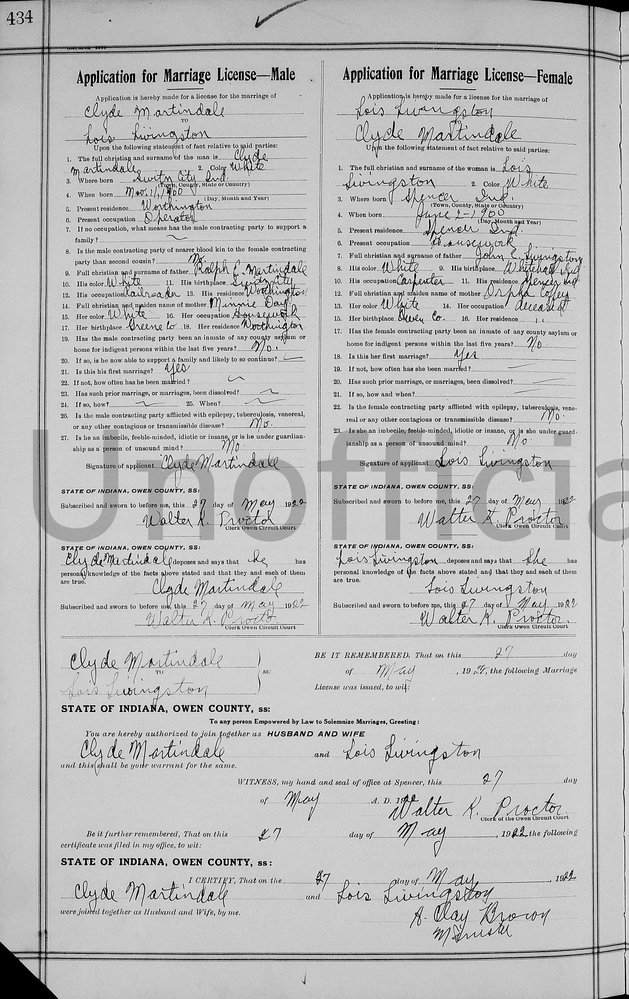 434
Application for Marriage License—Male
Application is hereby made for a license for the marriage of
Clyde Martindale
TO
Lois Livingston
Upon the following statement of fact relative to said parties:
1. The full christian and surname of the man is Clyde
Martindale 2. Color White
3. Where born Switz City Ind.
(Town, County, State or Country)
4. When born Nov. 11, 1900
(Day, Month and Year)
5. Present residence Worthington
6. Present occupation Operator
7. If no occupation, what means has the male contracting party to support a
family?
8. Is the male contracting party of nearer blood kin to the female contracting
party than second cousin? No.
9. Full christian and surname of father Ralph E. Martindale
10. His color White 11. His birthplace Switz City
12. His occupation Railroader 13. His residence Worthington
14. Full christian and maiden name of mother Minnie Day
15. Her color White 16. Her occupation Housework
17. Her birthplace Greene Co 18. Her residence Worthington
19. Has the male contracting party been an inmate of any county asylum or
home for indigent persons within the last five years? No.
20. If so, is he now able to support a family and likely to so continue?
21. Is this his first marriage? Yes
22. If not, how often has he been married?
23. Has such prior marriage, or marriages, been dissolved?
24. If so, how? 25. When?
26. Is the male contracting party afflicted with epilepsy, tuberculosis, venereal,
or any other contagious or transmissible disease? No.
27. Is he an imbecile, feeble-minded, idiotic or insane, or is he under guardian-
ship as a person of unsound mind? No.
Signature of applicant Clyde Martindale
STATE OF INDIANA, OWEN COUNTY, SS:
Subscribed and sworn to before me, this 27 day of May 1922
Walter K. Proctor
Clerk Owen Circuit Court
STATE OF INDIANA, OWEN COUNTY, SS:
Clyde Martindale deposes and says that he has
personal knowledge of the facts above stated and that they and each of them
are true.
Clyde Martindale
Subscribed and sworn to before me, this 27 day of May 1922
Walter K. Proctor
Clerk Owen Circuit Court
Application for Marriage License—Female
Application is hereby made for a license for the marriage of
Lois Livingston
TO
Clyde Martindale
Upon the following statement of fact relative to said parties:
1. The full christian and surname of the woman is Lois
Livingston 2. Color White
3. Where born Spencer Ind.
(Town, County, State or Country)
4. When born June 2-1900
(Day, Month and Year)
5. Present residence Spencer Ind.
6. Present occupation Housework
7. Full christian and surname of father John E. Livingston
8. His color White 9. His birthplace Whitehall Ind
10. His occupation Carpenter 11. His residence Spencer Ind
12. Full christian and maiden name of mother Orpha
13. Her color White 14. Her occupation deceased
15. Her birthplace Owen Co. 16. Her residence
17. Has the female contracting party been an inmate of any county asylum or
home for indigent persons within the last five years? No.
18. Is this her first marriage? Yes
19. If not, how often has she been married?
20. Has such prior marriage, or marriages, been dissolved?
21. If so, how and when?
22. Is the female contracting party afflicted with epilepsy, tuberculosis, vene-
real or any other contagious or transmissible disease? No.
23. Is she an imbecile, feeble-minded, idiotic or insane, or is she under guard-
ianship as a person of unsound mind? No
Signature of applicant Lois Livingston
STATE OF INDIANA, OWEN COUNTY, SS:
Subscribed and sworn to before me, this 27 day of May 1922
Walter K. Proctor
Clerk Owen Circuit Court
STATE OF INDIANA, OWEN COUNTY, SS:
Lois Livingston deposes and says that She has
personal knowledge of the facts above stated and that they and each of them
are true.
Lois Livingston
Subscribed and sworn to before me, this 27 day of May 1922
Walter K. Proctor.
Clerk Owen Circuit Court
Unofficia
Clyde Martindale
TO
Lois Livingston
ss:
BE IT REMEMBERED, That on this 27 day
of May, 1922, the following Marriage
License was issued, to wit:
STATE OF INDIANA, OWEN COUNTY, ss:
To any person Empowered by Law to Solemnize Marriages, Greeting:
You are hereby authorized to join together as HUSBAND AND WIFE
Clyde Martindale and Lois Livingston
and this shall be your warrant for the same.
WITNESS, my hand and seal of office at Spencer, this 27 day
of May A. D. 1922
Walter K. Proctor
Clerk of the Owen Circuit Court
Be it further remembered, That on this 27 day of May, 1922 the following
certificate was filed in my office, to wit:
STATE OF INDIANA, OWEN COUNTY, ss:
I CERTIFY, That on the 27 day of May, 1922
Clyde Martindale and Lois Livingston
were joined together as Husband and Wife, by me.
A. Clay Brown
Minister